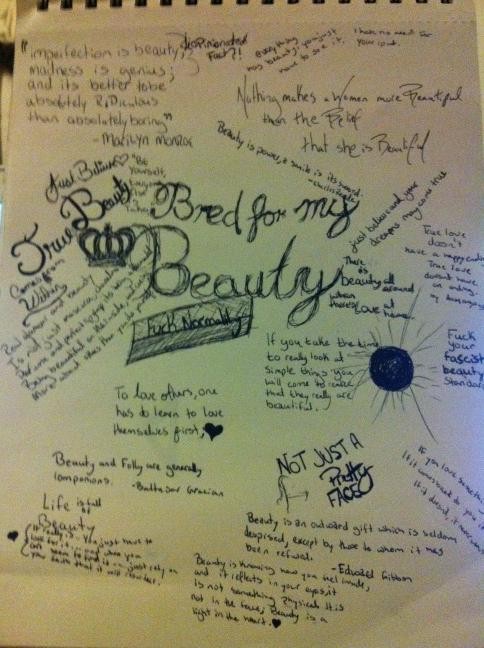 "imperfection is beauty;
madness is genius;
and its better to be
absolutely RiDiculous
than absolutely boring"
- Marilyn Monroe
everything
has beauty, you just
have to see it.
I have no need for
your
Nothing makes a Women more Beautiful
than the Belief
that she is Beautiful
Beauty is power, a smile is its sword
Just Believe
"Be
Yourself,
True Beauty
Comes from
Within
Bred for my
Beauty
Fuck Normality
just believe and your
dreams may come true
True love
doesn't
have a happy ending
True love
doesn't have
an ending.
There
is
Beauty all around
when
there's Love at
home.
If you take the time
to really look at
simple things you
will come to realize
that they really are
beautiful.
Fuck
your
fascist
beauty
Standards
To love others, one
has do learn to love
themselves first,
NOT JUST A
Pretty
FACE
Beauty and Folly are generally
companions.
- Baltasar Gracian
Life is full
of
Beauty
If you love something
Beauty is an outward gift which is seldom
despised, except by those to whom it has
been refused.
- Edward Gibbon
Beauty is knowing how you feel inside,
and it reflects in your eyes, it
is not something Physical. It is
not in the face; Beauty is a
light in the heart.